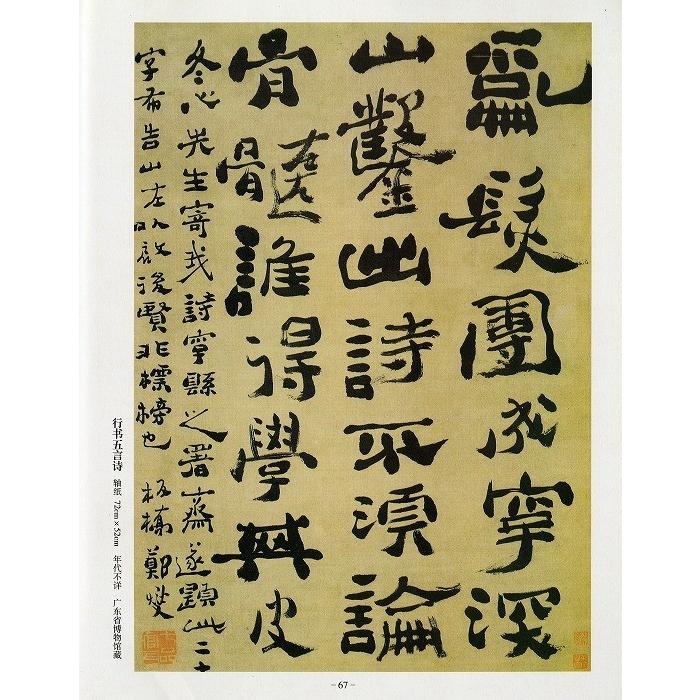 亂髮團成字深
山鑿出詩不須論
骨髓誰得學其皮
冬心先生寄我詩字縣之署齋遂題此二十
字布告山左以後賢非標榜也 板橋鄭燮
行书五言诗 轴纸 72cm×52cm 年代不详 广东省博物馆藏
-67-